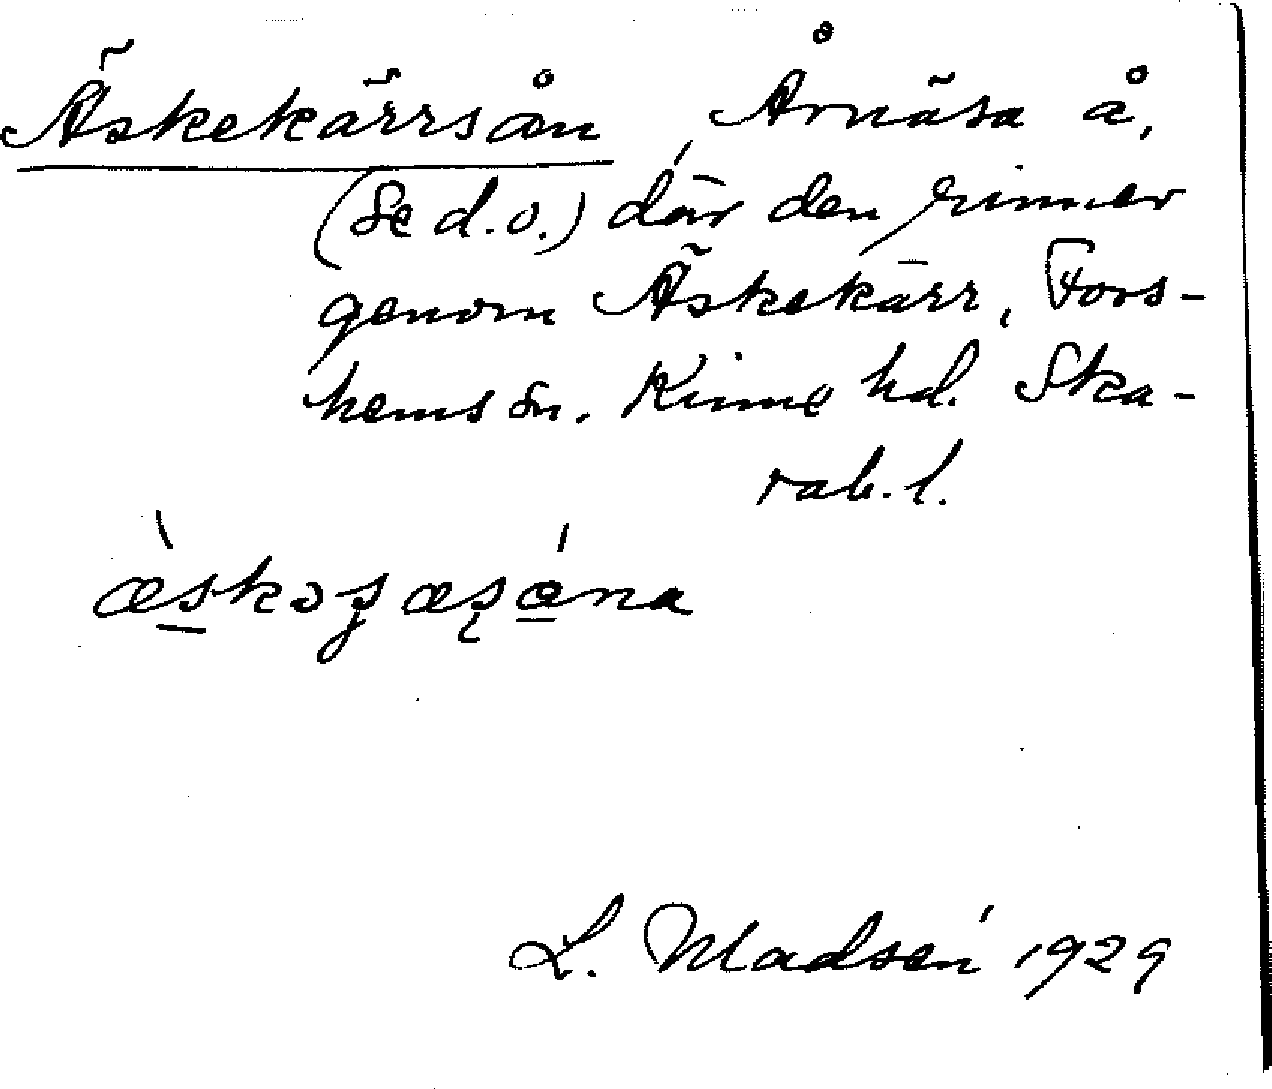 Äskekärrsån, Årnäsa å,
(se d.o.) där den rinner
genom Äskekärr, Fors-
hems sn. Kinne hd. Ska-
rab. l.
L. Madsén 1929